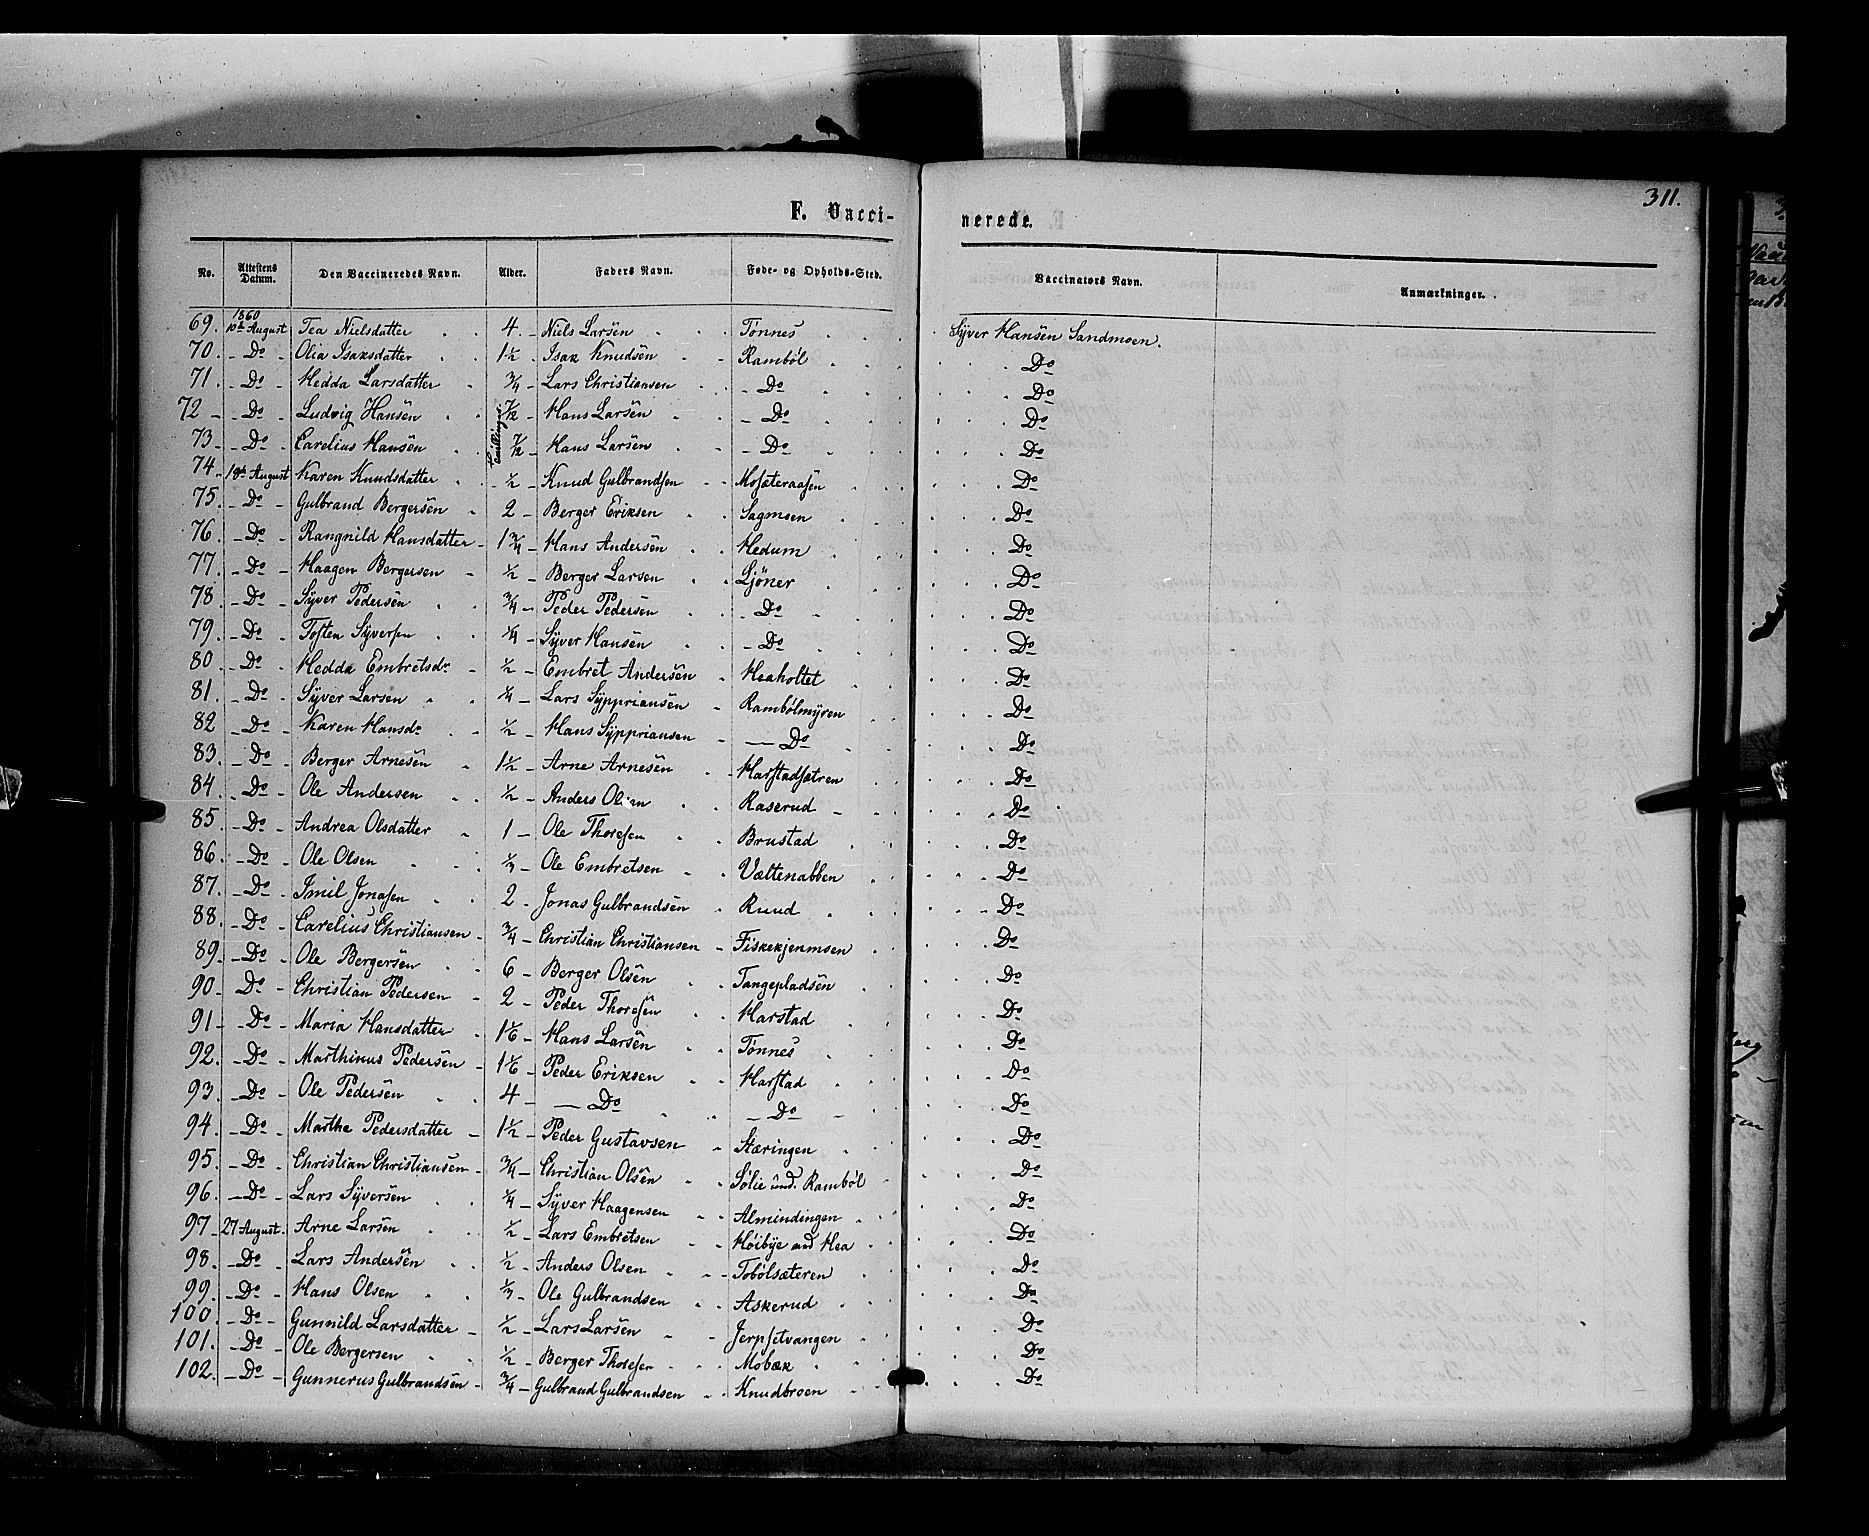 311.
F. Vacci-
nerede.
No. Attestens Datum. Den Vaccineredes Navn. Alder. Faders Navn. Føde- og Opholds-Sted. Vaccinators Navn. Anmærkninger.
1860
69. 10de August Tea Nielsdatter 4 Niels Larsen Tønnes Syver Hansen Sandmoen.
70. Do Olia Isaksdatter 1½ Isak Knudsen Rambøl Do
71. Do Hedda Larsdatter ¾ Lars Christiansen Do Do
72 Do Ludvig Hansen 7/12 Hans Larsen Do Do
Tvillinger
73. Do Carelius Hansen 7/12 Hans Larsen Do Do
74. 18de August Karen Knudsdatter ½ Knud Gulbrandsen Mosateraasen Do
75. Do Gulbrand Bergersen 2 Berger Eriksen Sagmoen Do
76. Do Rangnild Hansdatter 1¾ Hans Andersen Hedum Do
77. Do Haagen Bergersen ½ Berger Larsen Sjöner Do
78. Do Syver Pedersen ¾ Peder Pedersen Do Do
79. Do Tosten Syversen ¼ Syver Hansen Do Do
80. Do Hedda Embretsdr ½ Embret Andersen Heaholtet Do
81. Do Syver Larsen ¼ Lars Sÿppriansen Rambölmyren Do
82 Do Karen Hansdr ½ Hans Sÿppriansen Do Do
83. Do Berger Arnesen 1½ Arne Arnesen Harstadsætren Do
84. Do Ole Andersen ½ Anders Olsen Raserud Do
85. Do Andrea Olsdatter 1 Ole Thoresen Brustad Do
86. Do Ole Olsen ⅓ Ole Embretsen Væltenabben Do
87. Do Imil Jonasen 2 Jonas Gulbrandsen Ruud Do
88. Do Carelius Christiansen ¾ Christian Christiansen Fiskekjenmoen Do
89. Do Ole Bergersen 6 Berger Olsen Tangepladsen Do
90. Do Christian Pedersen 2 Peder Thoresen Harstad Do
91. Do Maria Hansdatter 1 1/6 Hans Larsen Tønnes Do
92. Do Marthinus Pedersen 1 1/6 Peder Eriksen Harstad Do
93. Do Ole Pedersen 4 Do Do Do
94. Do Marthe Pedersdatter 1½ Peder Gustavsen Stæringen Do
95. Do Christian Christiansen ¾ Christian Olsen Sølie und. Rambøl Do
96. Do Lars Syversen ¼ Syver Haagensen Almindingen Do
97. 27 August. Arne Larsen ½ Lars Embretsen Høibye und Hea Do
98. Do Lars Andersen ½ Anders Olsen Tobölsæteren Do
99. Do Hans Olsen ⅓ Ole Gulbrandsen Askerud Do
100. Do Gunnild Larsdatter ½ Lars Larsen Jerpsetvangen Do
101. Do Ole Bergersen ½ Berger Thoresen Mobæk Do
102. Do Gunnerus Gulbrandsen ¾ Gulbrand Gulbrandsen Knudbroen Do